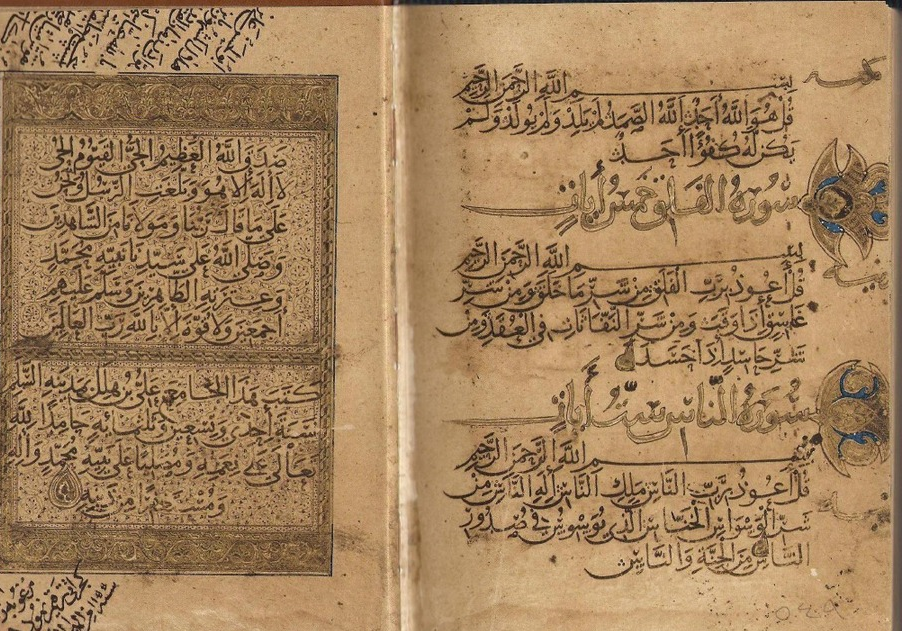 بسم الله الرحمن الرحيم
قل هو الله احد الله الصمد لم يلد ولم يولد ولم
يكن له كفوا احد
سورة الفلق خمس آيات
بسم الله الرحمن الرحيم
قل أعوذ برب الفلق من شر ما خلق ومن شر
غاسق إذا وقب ومن شر النفاثات في العقد ومن
شر حاسد إذا حسد
سورة الناس ست آيات
بسم الله الرحمن الرحيم
قل أعوذ برب الناس ملك الناس إله الناس من
شر الوسواس الخناس الذي يوسوس في صدور
الناس من الجنة والناس
صدق الله العظيم الحي القيوم الحي
لا إله إلا هو وبلغت الرسل ونحن
على ما قال ربنا ومولانا من الشاهدين
وصلى الله على سيدنا نبيه محمد
وعترته الطاهرين وسلم عليهم
أجمعين ولا قوة إلا بالله رب العالمين
كتب هذا الجامع علي بن هلال بمدينة السلام
سنة إحدى وتسعين وثلثمائة حامدا لله
تعالى على نعمه ومصليا على نبيه محمد وآله
ومستغفرا من ذنبه